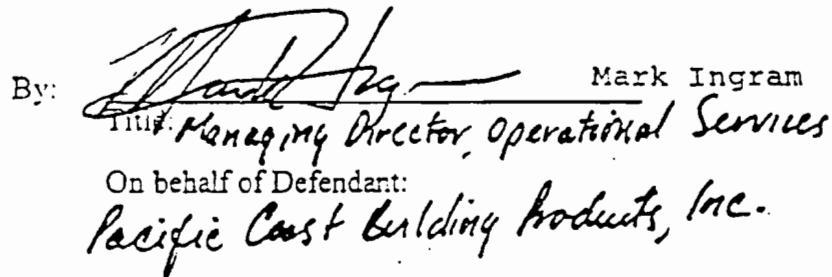 By: Mark Ingram
Title: Managing Director, Operational Services
On behalf of Defendant:
Pacific Coast Building Products, Inc.